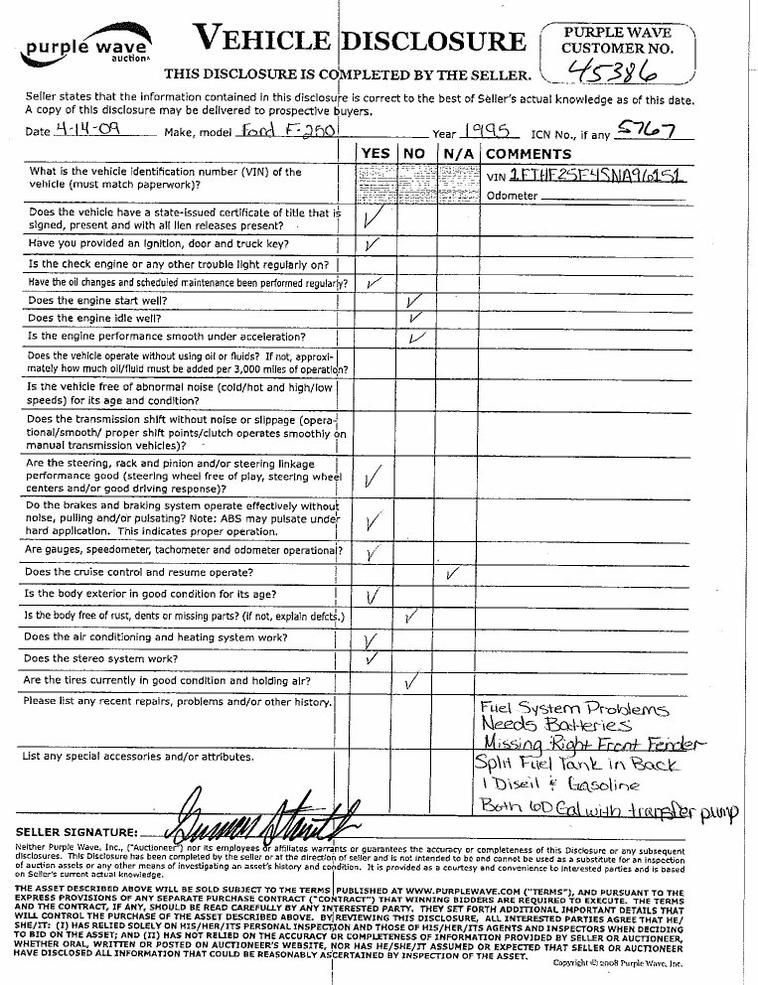 purple wave
auction
VEHICLE DISCLOSURE
PURPLE WAVE
CUSTOMER NO.
45386
THIS DISCLOSURE IS COMPLETED BY THE SELLER.
Seller states that the information contained in this disclosure is correct to the best of Seller's actual knowledge as of this date.
A copy of this disclosure may be delivered to prospective buyers.
Date 4-14-09 Make, model Ford F-250 Year 1995 ICN No., if any 5767
YES NO N/A COMMENTS
What is the vehicle identification number (VIN) of the
vehicle (must match paperwork)?
VIN 1FTHF25F4SNA96151
Odometer
Does the vehicle have a state-issued certificate of title that is
signed, present and with all lien releases present? ✓
Have you provided an ignition, door and truck key? ✓
Is the check engine or any other trouble light regularly on?
Have the oil changes and scheduled maintenance been performed regularly? ✓
Does the engine start well? ✓
Does the engine idle well? ✓
Is the engine performance smooth under acceleration? ✓
Does the vehicle operate without using oil or fluids? If not, approxi-
mately how much oil/fluid must be added per 3,000 miles of operation?
Is the vehicle free of abnormal noise (cold/hot and high/low
speeds) for its age and condition?
Does the transmission shift without noise or slippage (opera-
tional/smooth/ proper shift points/clutch operates smoothly on
manual transmission vehicles)?
Are the steering, rack and pinion and/or steering linkage
performance good (steering wheel free of play, steering wheel
centers and/or good driving response)? ✓
Do the brakes and braking system operate effectively without
noise, pulling and/or pulsating? Note: ABS may pulsate under
hard application. This indicates proper operation. ✓
Are gauges, speedometer, tachometer and odometer operational? ✓
Does the cruise control and resume operate? ✓
Is the body exterior in good condition for its age? ✓
Is the body free of rust, dents or missing parts? (if not, explain defcts.) ✓
Does the air conditioning and heating system work? ✓
Does the stereo system work? ✓
Are the tires currently in good condition and holding air? ✓
Please list any recent repairs, problems and/or other history.
Fuel System Problems
Needs Batteries
Missing Right Front Fender
List any special accessories and/or attributes.
Split Fuel Tank in Back
1 Diseil & Gasoline
Both 60 Gal with transfer pump
SELLER SIGNATURE:
Neither Purple Wave, Inc., ("Auctioneer") nor its employees or affiliates warrants or guarantees the accuracy or completeness of this Disclosure or any subsequent
disclosures. This Disclosure has been completed by the seller or at the direction of seller and is not intended to be and cannot be used as a substitute for an inspection
of auction assets or any other means of investigating an asset's history and condition. It is provided as a courtesy and convenience to interested parties and is based
on Seller's current actual knowledge.
THE ASSET DESCRIBED ABOVE WILL BE SOLD SUBJECT TO THE TERMS PUBLISHED AT WWW.PURPLEWAVE.COM ("TERMS"), AND PURSUANT TO THE
EXPRESS PROVISIONS OF ANY SEPARATE PURCHASE CONTRACT ("CONTRACT") THAT WINNING BIDDERS ARE REQUIRED TO EXECUTE. THE TERMS
AND THE CONTRACT, IF ANY, SHOULD BE READ CAREFULLY BY ANY INTERESTED PARTY. THEY SET FORTH ADDITIONAL IMPORTANT DETAILS THAT
WILL CONTROL THE PURCHASE OF THE ASSET DESCRIBED ABOVE. BY REVIEWING THIS DISCLOSURE, ALL INTERESTED PARTIES AGREE THAT HE/
SHE/IT: (I) HAS RELIED SOLELY ON HIS/HER/ITS PERSONAL INSPECTION AND THOSE OF HIS/HER/ITS AGENTS AND INSPECTORS WHEN DECIDING
TO BID ON THE ASSET; AND (II) HAS NOT RELIED ON THE ACCURACY OR COMPLETENESS OF INFORMATION PROVIDED BY SELLER OR AUCTIONEER,
WHETHER ORAL, WRITTEN OR POSTED ON AUCTIONEER'S WEBSITE, NOR HAS HE/SHE/IT ASSUMED OR EXPECTED THAT SELLER OR AUCTIONEER
HAVE DISCLOSED ALL INFORMATION THAT COULD BE REASONABLY ASCERTAINED BY INSPECTION OF THE ASSET.
Copyright © 2008 Purple Wave, Inc.